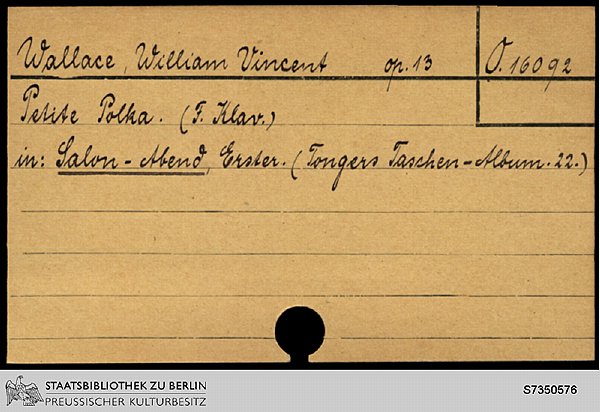 Wallace, William Vincent op. 13 O. 16092
Petite Polka. (F. Klav.)
in: Salon-Abend, Erster. (Tongers Taschen-Album. 22.)
STAATSBIBLIOTHEK ZU BERLIN
PREUSSISCHER KULTURBESITZ
S7350576